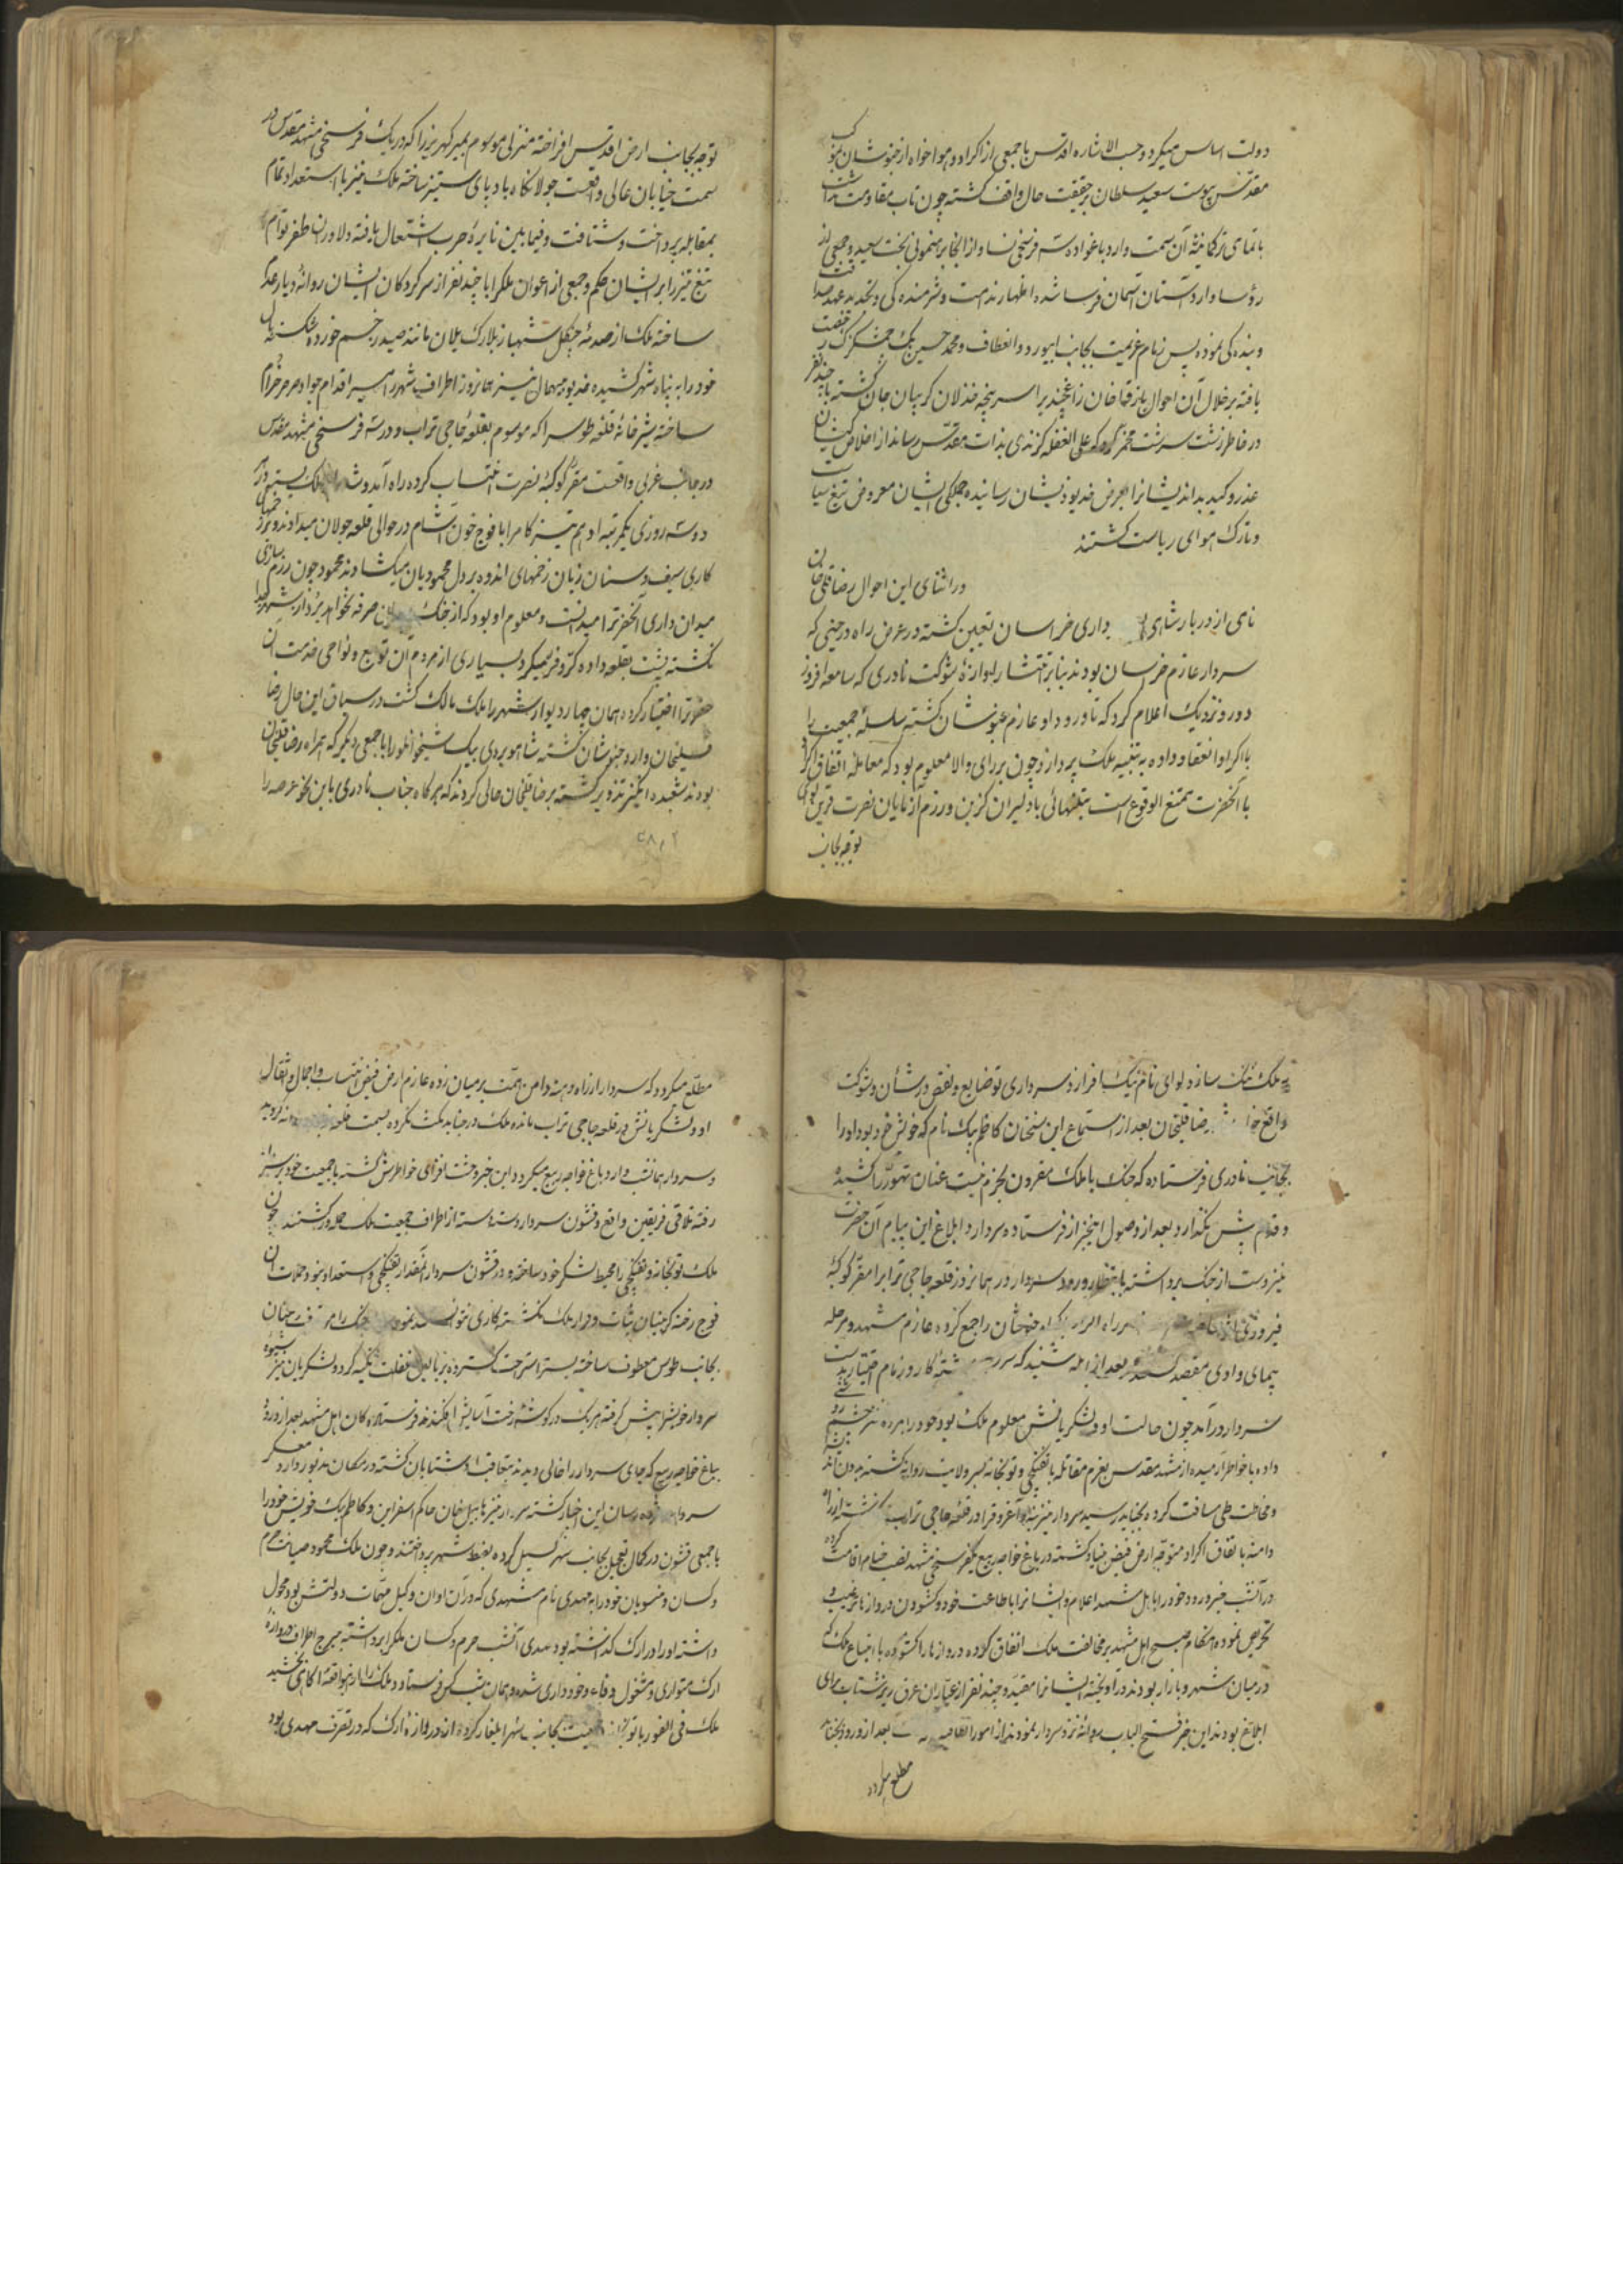 دولت اساس میکرد و حسب الاشاره اقدس با جمعی از اکراد و هوا خواه از خبوشان بموکب
مقدس پیوست سعید سلطان بر حقیقت حال واقف گشته چون تاب مقاومت نداشت
با تمامی ترکمانیه آن سمت وارد باغواده سه فرسخی نسا و از آنجا برهنمونی بخت سعید و جمعی از
رؤسا وارد آستان آسمان فرسا شده اظهار ندامت و شرمنده کی و تجدید عهد صداقت
و بنده کی نموده پس زمام عزیمت بجانب ابیورد و انعطاف و محمد حسین بیک چمشکزک رخصت
یافته بر خلال آن احوال باز قباخان زاغچند بر اسر پنجه خذلان گریبان جان گشته با چند نفر
در خاطر زشت سرشت مخمر کرد که علی الغفله گزندی بذات مقدس رساند از اخلاص کیشان
غدر و کید بداندیشانرا بعرض خدیو ذیشان رسانیده جملکی ایشان معروض تیغ سیاست
و تارک هوای ریاست گشتند
در اثنای این احوال رضا قلی خان
نامی از دربار شاهی داری خراسان تعیین گشته در عرض راه در حینی که
سردار عازم خراسان بودند بنا بر انتشار اوازهٔ شوکت نادری که سامعه افروز
دور و نزدیک اعلام کرد که تا ورود او عازم خبوشان گشته سلسلهٔ جمعیت را
با اکراد انعقاد داده به تنبیه ملک پردازد چون بر رای والا معلوم بود که معامله اتفاق اکراد
با آنحضرت ممتنع الوقوع است بتنهائی با دلیران گزین و رزم آزمایان نصرت قرین لوای
توجه بجانب
توجه بجانب ارض اقدس افراخته منزلی موسوم بمیر کهریز را که در یک فرسخی مشهد مقدس در
سمت خیابان عالی واقعست جولانکاه باد پای ستیز ساخته ملک نیز با استعداد تمام
بمقابله پرداخت و شتافت و فیما بین نایرهٔ حرب اشتعال یافته دلاوران ظفر توأم
تیغ تیز را بر ایشان حکم و جمعی از اعوان ملکرا با چند نفر از سرکردکان ایشان روانهٔ دیار عدم
ساخته ملک از صدمهٔ چنگل شهباز بلارک یلان مانند صید زخم خورده شکسته بال
خود را به پناه شهر کشیده خدیو بیهمال نیز همانروز اطراف شهر را سیر اقدام جواد صرصر خرام
ساخته پیشرخانهٔ قلعه طوسرا که موسوم بقلعه حاجی تراب و در سه فرسخی مشهد مقدس
در جانب غربی واقعست مقر کوکبهٔ نصرت انتساب کرده راه آمد و شد بر ملک بستند
دو سه روزی یکمرتبه ادهم تیز کامرا با فوج خون آشام در حوالی قلعه جولان میداد و ضربتهای
کاری سیف و سنان زبان زخمهای اندوه بر دل محمودیان میکشادند محمود چون رزم سازی
میدان داری آنحضرترا میدانست و معلوم او بود که از جنک صرفه نخواهد برد از شهر جدا
نکشته پشت بقلعه داده کر و فر میکرد بسیاری از مردم آن توابع و نواحی خدمت آن
حضرترا اختیار کرده همان چهار دیوار شهر را ملک مالک گشت در سیاق این حال رضا
قلیخان وارد خبوشان گشته شاهویردی بیک شیخوانلو را با جمعی دیگر که همراه رضا قلیخان
بودند شعبده انگیز تزویر گشته برضا قلیخان حالی کردند که هر گاه جناب نادری باین نحو عرصه را
به ملک تنک سازد لوای نام نیک افرازد سرداری تو ضایع و نقص در شأن و شوکت
واقع خواهد شد رضا قلیخان بعد از استماع این سخنان کاظم بیک نام که خویش خود بود او را
بجانب نادری فرستاده که جنک با ملک مقرون بحزم نیست عنان تهور را کشیده
و قدم پیش نگذارد بعد از وصول این خبر از فرستاده سردار و ابلاغ این پیام آن حضرت
نیز دست از جنک برداشته بانتظار ورود سردار در همانروز قلعه حاجی ترابرا مقر کوکبهٔ
فیروزی راه اکراد خبوشان را جمع کرده عازم مشهد و مرحله
پیمای وادی مقصد بعد از آنکه شنید که سر رشتهٔ کار و زمام اختیار بدست
سردار درآمد چون حالت او و لشکریانش معلوم ملک بود خود را بهرزه
داده با خاطر آرمیده از مشهد مقدس بعزم مقاتله با تفنکچی و توپخانه بسر ولایت روانه گشته
و مخاطت طی مسافت کرده بجناباد رسید سردار نیز بنه و آغرق را در قلعه حاجی تراب گذاشته از راه
دامنه باتفاق اکراد متوجه ارض فیض بنیاد گشته در باغ خواجه ربیع یکفرسخی مشهد نصب خیام اقامت کرده
در آنشب خبر ورود خود را باهل مشهد اعلام و ایشانرا باطاعت خود و گشودن دروازها ترغیب و
تحریص نموده هنکام صبح اهل مشهد بر مخالفت ملک اتفاق کرده دروازها را گشوده با اتباع ملک که
در میان شهر و بازار بودند در آویخته ایشانرا مقید و چند نفر از عیاران عرق ریز شتاب برای
ابلاغ بودند این خبر فتح الباب روانهٔ نزد سردار نمودند از امور اتفاقیه بعد از ورود بجناباد
مطلع میکردد
مطلع میکردد که سردار از راه دامنه دامن همت بر میان زده عازم ارض فیض انتساب و احمال و اثقال
او و لشکریانش در قلعه حاجی تراب مانده ملک در جناباد مکث نکرده بسمت قلعه
و سردار همانشب وارد باغ خواجه ربیع میکردد این خبر وحشت افزای خاطرش گشته با جمعیت خود بر سر
رفته تلاقی فریقین واقع و قشون سردار دسته دسته از اطراف جمعیت ملک حمله ور گشتند چون
ملک توپخانه و تفنکچی را محیط لشکر خود ساخته و در قشون سردار آنقدر تفنکچی و استعداد نبود حملات آن
فوج رخنه گر بنیان ثبات و قرار ملک نکشته کاری نتوانستند نمود جنک را متوقف عنان
بجانب طوس معطوف ساخته بستر استراحت گسترده بر بالین غفلت تکیه کرد و لشکریان نیز شیوه
سردار خویش را پیش گرفته هر یک در گوشهٔ رخت آسایش افکندند فرستاده کان اهل مشهد بعد از ورود
بباغ خواجه ربیع که جای سردار را خالی دیدند بتعاقب او شتابان گشته در مکان مذبور وارد معسکر
سردار و مژده رسان این اخبار گشته سردار نیز بابیل خان حاکم اسفراین و کاظم بیک خویش خود را
با جمعی قشون در کمال تعجیل بجانب شهر گسیل کرده بضبط شهر پرداختند و چون ملک محمود صیانت حرم
و کسان و منسوبان خود را به مهدی نام مشهدی که در آن اوان وکیل مهمات دولتش بود محول
داشته او را در ارک گذاشته بود مهدی آنشب حرم و کسان ملکرا برداشته ببرج اطراف دروازه
ارک متواری و مشغول دفاع و خود داری شده و همان شب کس فرستاد و ملک را از این واقعه آگاهی بخشید
ملک فی الفور با توپخانه و جمعیت بجانب شهر ایلغار کرده از دروازهٔ ارک که در تصرف مهدی بود